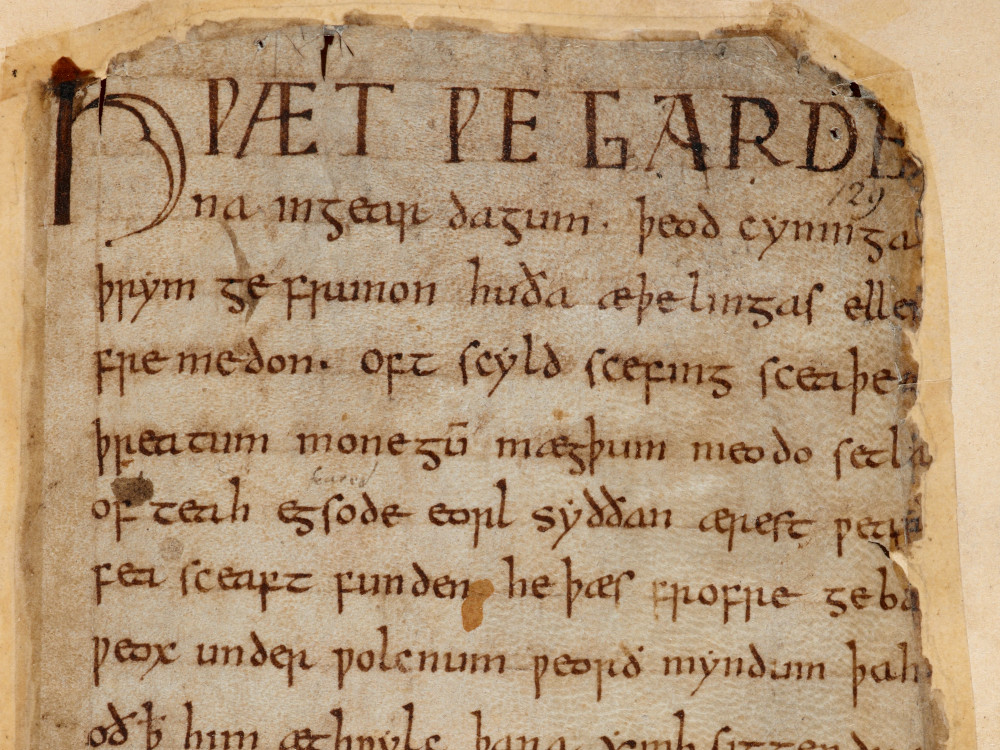 HǷÆT ǷE GARDE
na ingear dagum. þeod cyninga
þrym ge frunon huða æþelingas elle
fre medon. oft scyld scefing sceaþe
þreatum monegū mægþum meodo setla
of teah egsode eorl syððan ærest ƿear
fea sceaft funden he þæs frofre geba
ƿeox under ƿolcnum ƿeorð myndum þah
oð ꝥ him æghƿylc þara ymb sittend
129